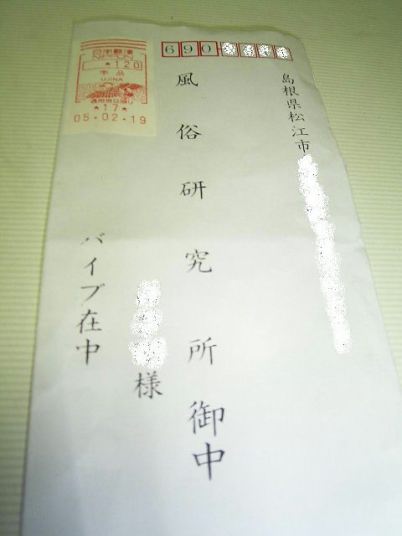 日本郵便
NIPPON
*120
宇品
UJINA
*17*
05-02-19
690-
島根県松江市
風俗研究所御中
様
バイブ在中